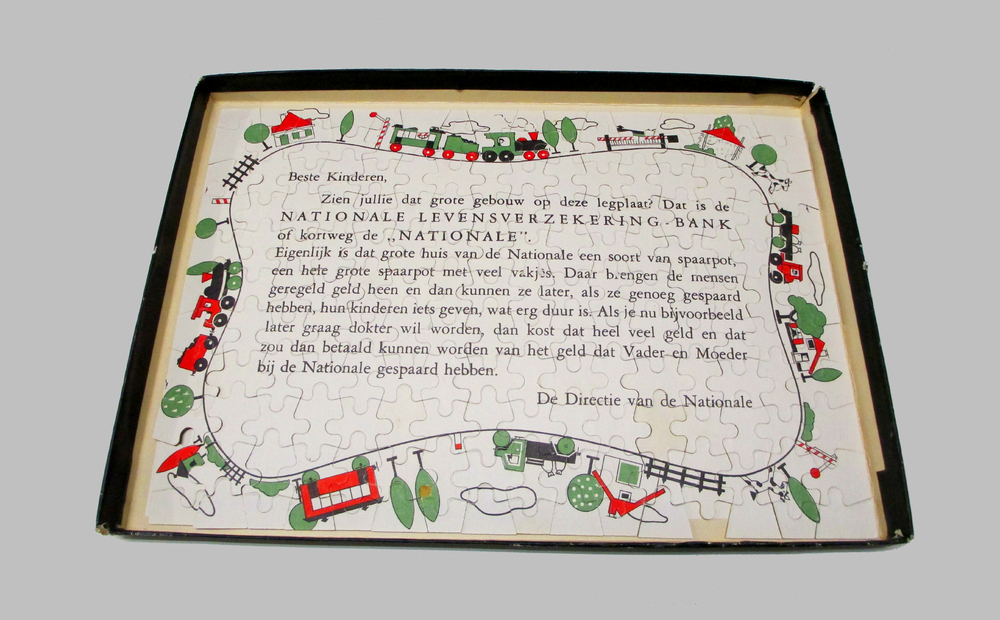 Beste Kinderen,
Zien jullie dat grote gebouw op deze legplaat? Dat is de
NATIONALE LEVENSVERZEKERING-BANK
of kortweg de „NATIONALE”.
Eigenlijk is dat grote huis van de Nationale een soort van spaarpot,
een hele grote spaarpot met veel vakjes. Daar brengen de mensen
geregeld geld heen en dan kunnen ze later, als ze genoeg gespaard
hebben, hun kinderen iets geven, wat erg duur is. Als je nu bijvoorbeeld
later graag dokter wil worden, dan kost dat heel veel geld en dat
zou dan betaald kunnen worden van het geld dat Vader en Moeder
bij de Nationale gespaard hebben.
De Directie van de Nationale